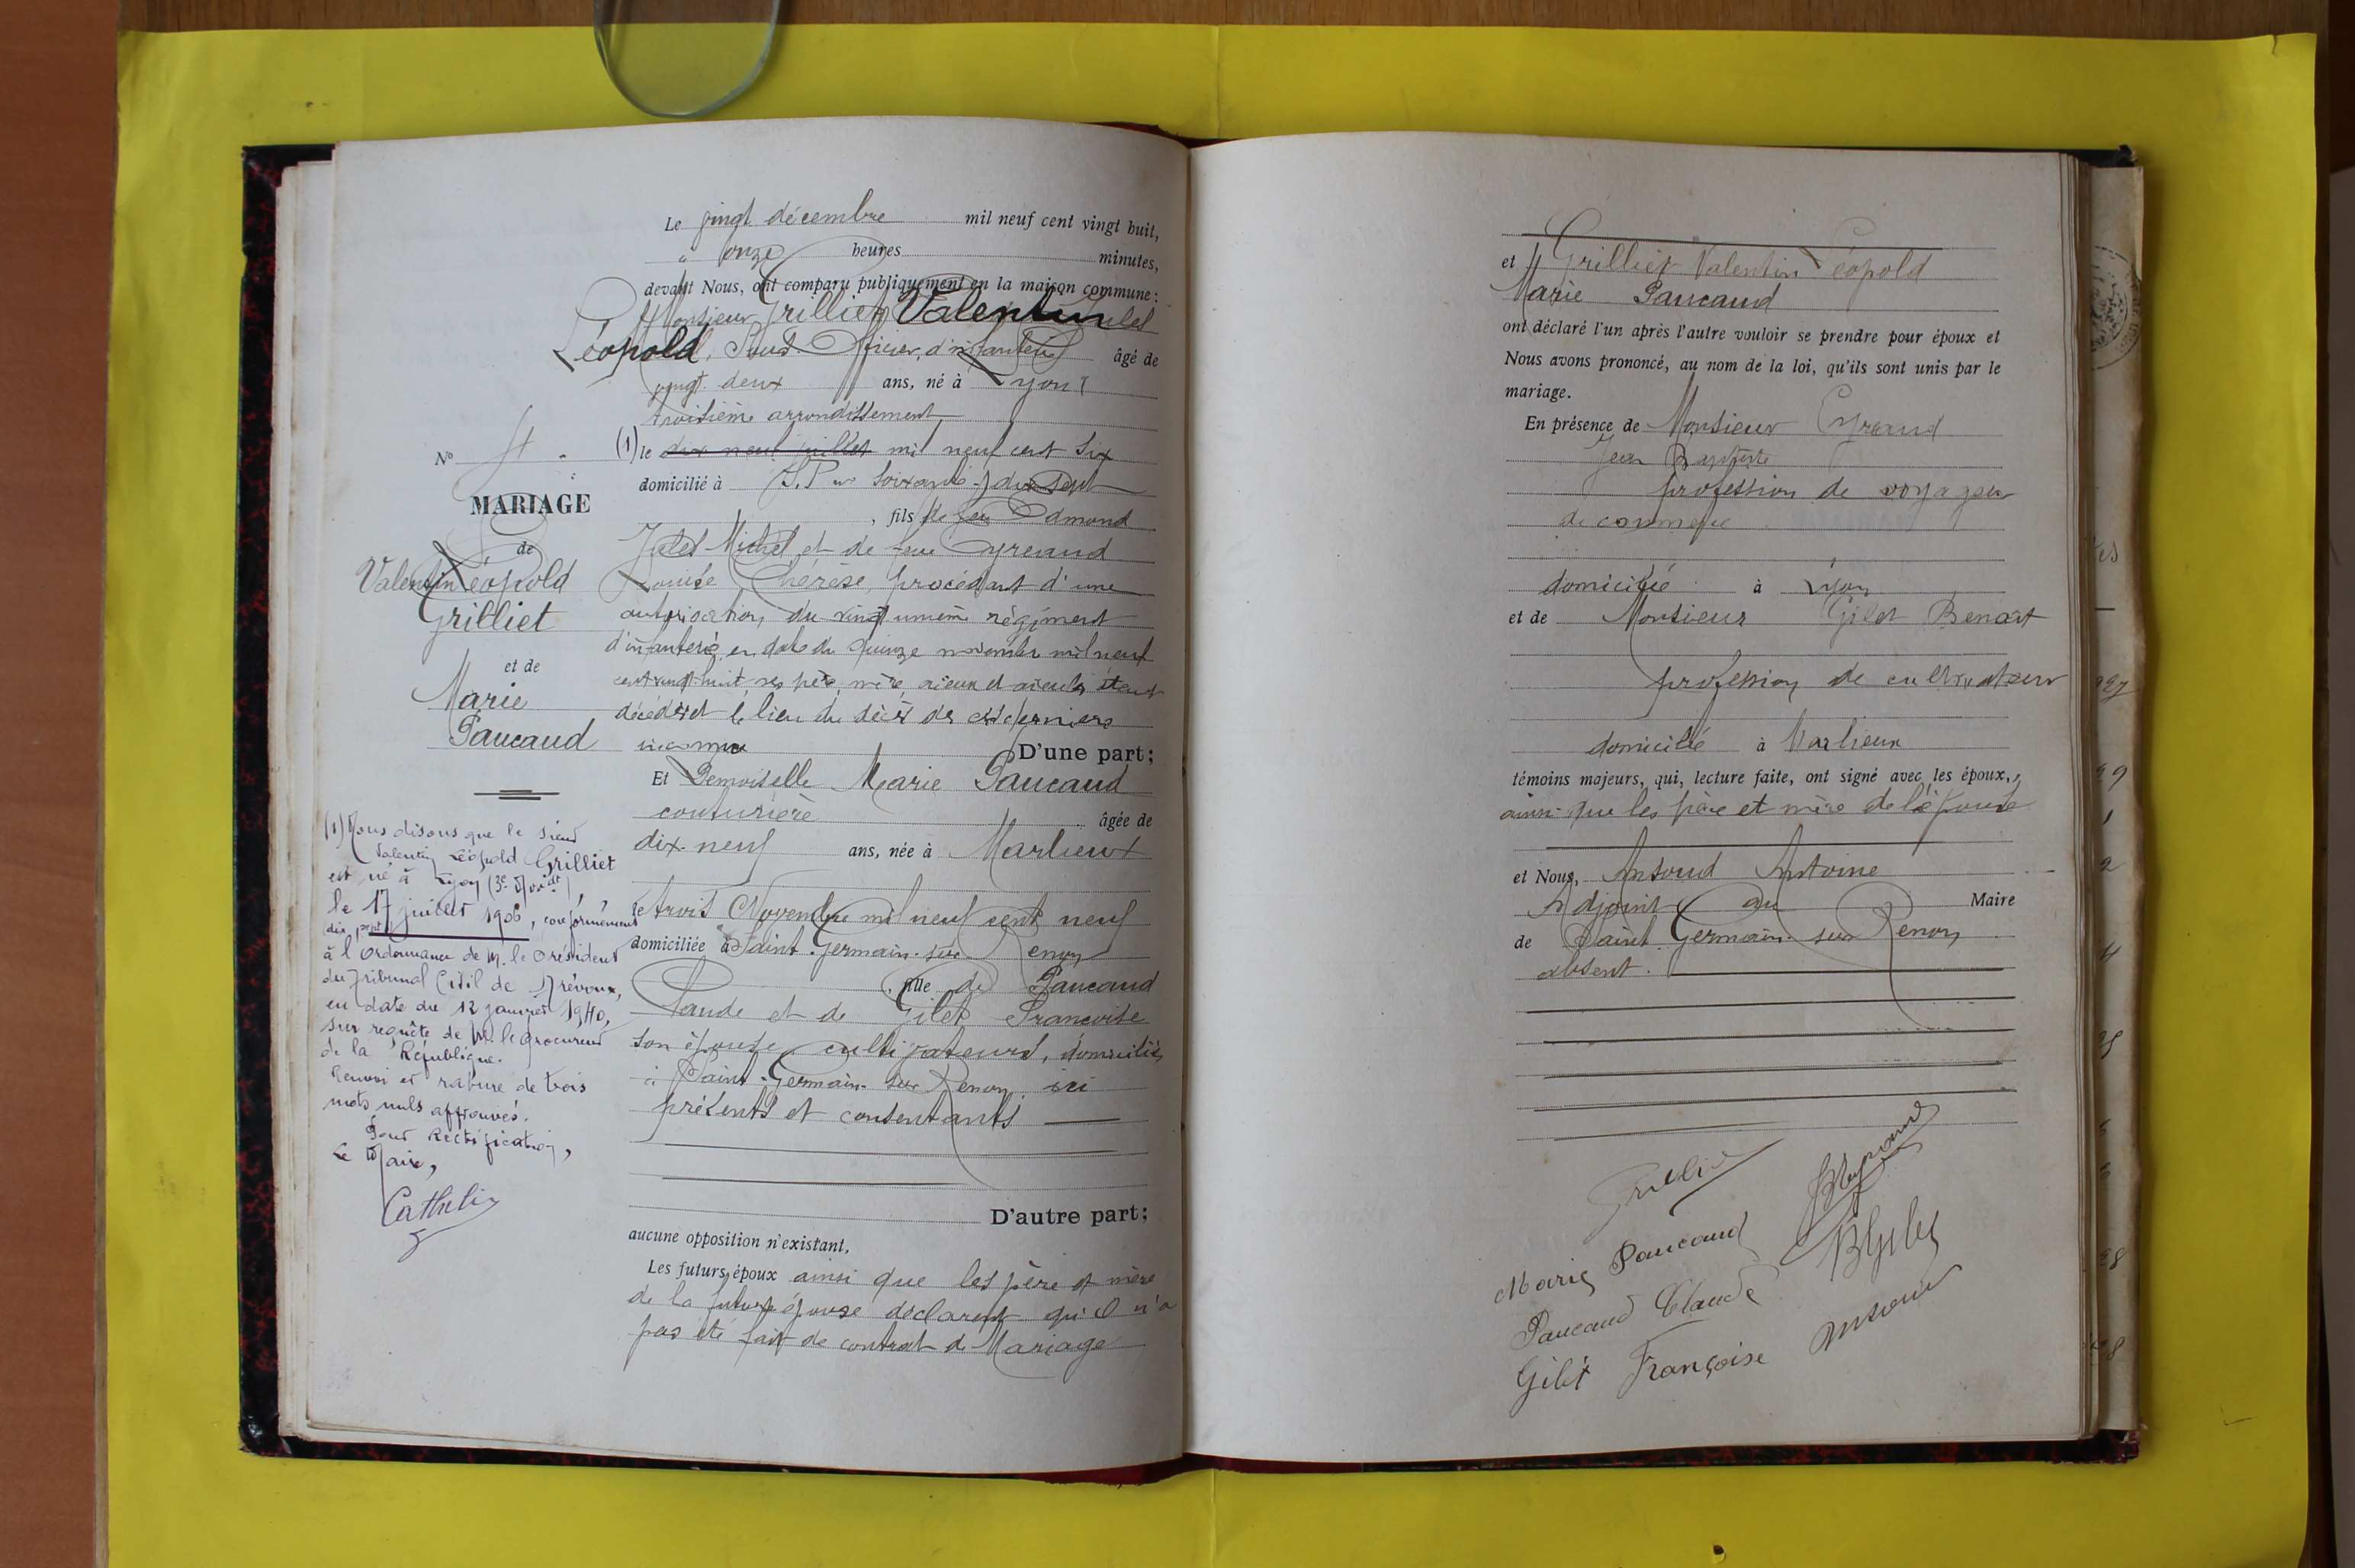 Le vingt décembre mil neuf cent vingt huit,
à onze heures minutes,
devant Nous, ont comparu publiquement en la maison commune :
Monsieur Grilliet Valentin
Léopold, Sous-Officier d'infanterie âgé de
vingt deux ans, né à Lyon
troisième arrondissement
(1) le dix neuf juillet mil neuf cent six
domicilié à S.P. soixante
, fils de feu Edmond
Jules Michel et de feue Eyreaud
Louise Thérèse, procédant d'une
autorisation du vingt unième régiment
d'infanterie en date du quinze novembre mil neuf
cent vingt-huit, ses père, mère, aïeux et aïeules étant
décédés et le lieu du décès de ces derniers
inconnu D'une part ;
Et Demoiselle Marie Paucaud
couturière âgée de
dix-neuf ans, née à Marlieux
le trois Novembre mil neuf cent neuf
domiciliée à Saint-Germain-sur-Renon
, fille de Paucaud
Claude et de Gilet Françoise
son épouse, cultivateurs, domiciliés
à Saint-Germain-sur-Renon, ici
présents et consentants
D'autre part ;
aucune opposition n'existant,
Les futurs époux ainsi que les père et mère
de la future épouse déclarent qu'il n'a
pas été fait de contrat de Mariage
No 4
MARIAGE
de
Valentin Léopold
Grilliet
et de
Marie
Paucaud
(1) Nous disons que le sieur
Valentin Léopold Grilliet
est né à Lyon (3e Arrdt)
le 17 juillet 1906, conformément
(dix sept)
à l'Ordonnance de M. le Président
du Tribunal Civil de Trévoux,
en date du 12 janvier 1940,
sur requête de M. le Procureur
de la République.
Renvoi et rature de trois
mots nuls approuvés.
Pour Rectification,
Le Maire,
Cathelin
et Grilliet Valentin Léopold
Marie Paucaud
ont déclaré l'un après l'autre vouloir se prendre pour époux et
Nous avons prononcé, au nom de la loi, qu'ils sont unis par le
mariage.
En présence de Monsieur Eyreaud
Jean Baptiste
profession de voyageur
de commerce
domicilié à Lyon
et de Monsieur Gilet Benoit
profession de cultivateur
domicilié à Marlieux
témoins majeurs, qui, lecture faite, ont signé avec les époux,
ainsi que les père et mère de l'épouse
et Nous, Ansoud Antoine
Adjoint au Maire
de Saint Germain sur Renon
absent.
Grilliet
Marie Paucaud
B Gilet
Paucaud Claude
Ansoud
Gilet Françoise